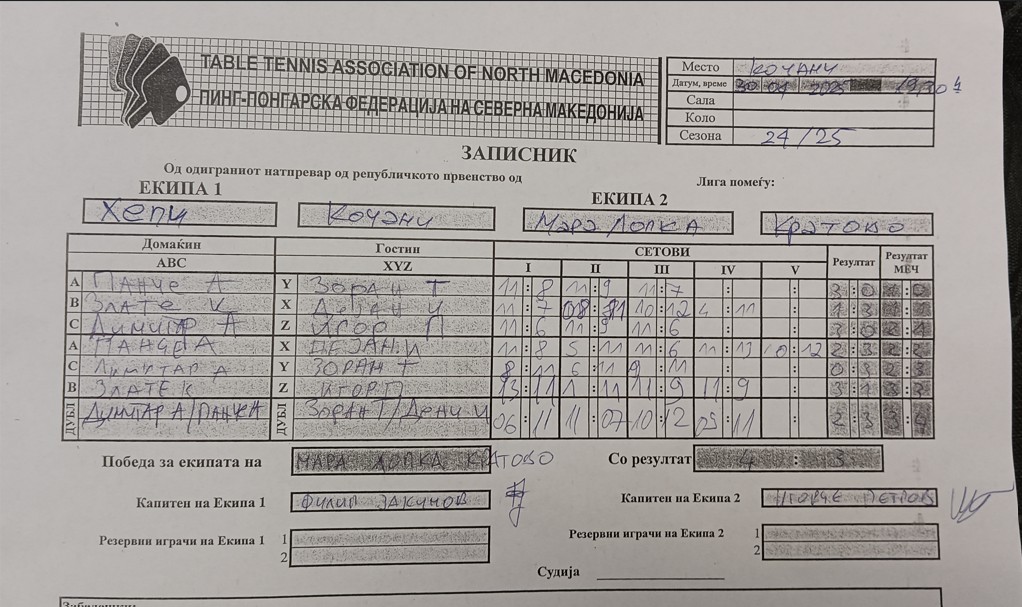 TABLE TENNIS ASSOCIATION OF NORTH MACEDONIA
ПИНГ-ПОНГАРСКА ФЕДЕРАЦИЈА НА СЕВЕРНА МАКЕДОНИЈА
Место КОЧАНИ
Датум, време 30 04 2025 19:30
Сала
Коло
Сезона 24/25
ЗАПИСНИК
Од одиграниот натпревар од републичкото првенство од Лига помеѓу:
ЕКИПА 1 ЕКИПА 2
Хепи Кочани Мара Лопка Кратово
Домаќин Гостин СЕТОВИ Резултат Резултат МЕЧ
ABC XYZ I II III IV V
A ПАНЧЕ А Y ЗОРАН Т 11:8 11:9 11:7 : : 3:0 1:0
B ЗЛАТЕ К X ДЕЈАН И 11:7 08:11 10:12 4:11 : 1:3 1:1
C ДИМИТАР А Z ИГОР П 11:6 11:9 11:6 : : 3:0 2:1
A ПАНЧЕ А X ДЕЈАН И 11:8 5:11 11:6 11:13 10:12 2:3 2:2
C ДИМИТАР А Y ЗОРАН Т 8:11 6:11 9:11 : : 0:3 2:3
B ЗЛАТЕ К Z ИГОР П 13:11 11:9 11:9 : 3:1 3:3
ДУБЛ ДИМИТАР А/ ДУБЛ ЗОРАН Т/ 06:11 11:07 10:12 09:11 : 3:4
Победа за екипата на МАРА ЛОПКА КРАТОВО Со резултат 4:3
Капитен на Екипа 1 ФИЛИП Капитен на Екипа 2 ПЕТРОВ
Резервни играчи на Екипа 1 1 Резервни играчи на Екипа 2 1
2 2
Судија